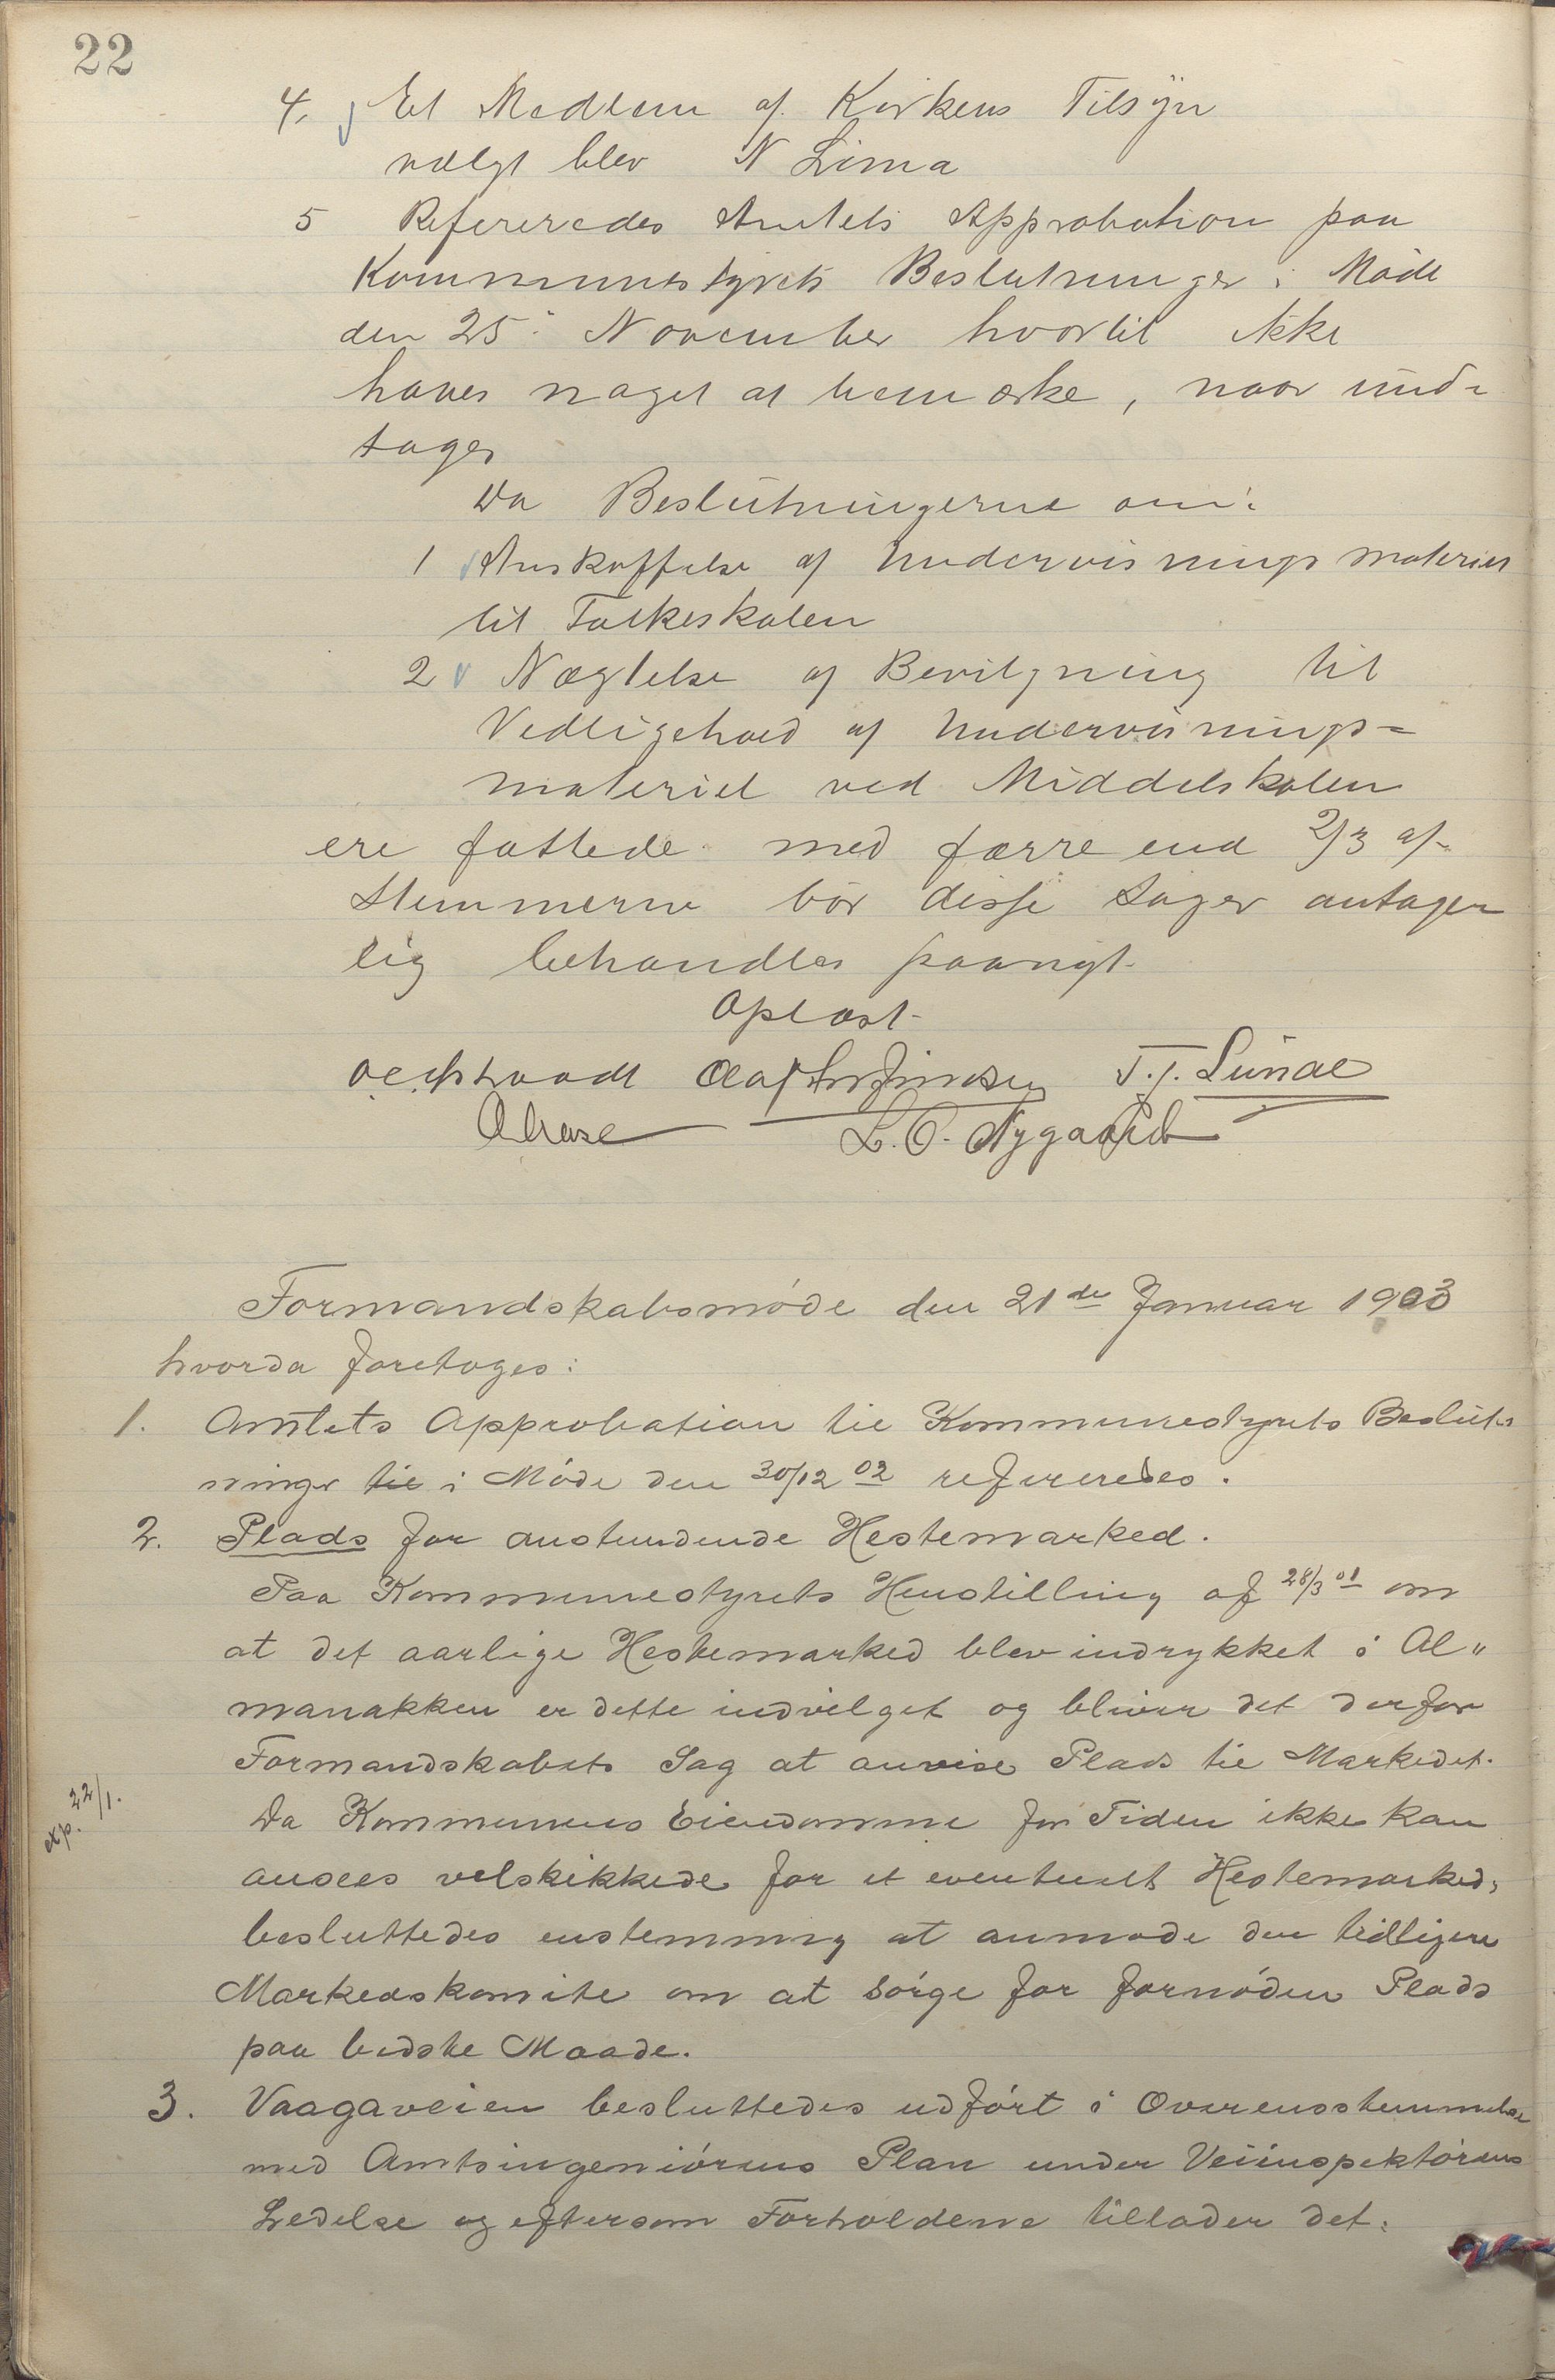 22
4, Et Medlem af Kirkens Tilsyn
valgt blev N Lima
5 Refereredes Amtets Approbation paa
Kommunestyrets Beslutninger i Møde
den 25. November hvortil ikke
haves noget at bemærke, naar und-
tages
Da Beslutningerne om:
1 Anskaffelse af Undervisningsmateriel
til Folkeskolen
2 Nægtelse af Bevilgning til
Vedligehold af Undervisnings-
materiel ved Middelskolen
ere fattede med færre end 2/3 af
Stemmerne bør disse Sager antagen
lig behandles paanyt.
Oplæst.
T. J. Lunde
L. O. Nygaard
Formandskabsmøde den 21de Januar 1903
hvorda foretoges:
1. Amtets Approbation til Kommunestyrets Beslut-
ninger til i Møde den 30/12 02 refereredes.
2. Plads for anstundende Hestemarked.
Paa Kommunestyrets Henstilling af 28/3 01 om
at det aarlige Hestemarked blev indrykket i Al"
manakken er dette indvilget og bliver det derfor
Formandskabets Sag at anvise Plads til Markedet.
22/1.
exp.
Da Kommunens Eiendomme for Tiden ikke kan
ansees velskikkede for et eventuelt Hestemarked,
besluttedes enstemmig at anmode den tidligere
Markedskomite om at sørge for fornøden Plads
paa bedste Maade.
3. Vaagaveien besluttedes udført i Overensstemmelse
med Amtsingeniørens Plan under Veiinspektørens
Ledelse og eftersom Forholdene tillader det.